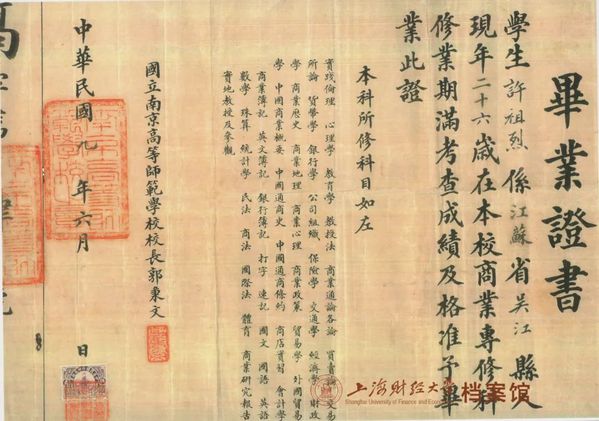 畢業證書
學生許祖烈係江蘇省吳江縣人
現年二十六歲在本校商業專修科
修業期滿考查成績及格准予畢
業此證
本科所修科目如左
實踐倫理 心理學 教育學 教授法 商業通論各論 買賣論 交易
所論 貨幣學 銀行學 公司組織 保險學 交通學 經濟學 財政
學 商業歷史 商業地理 商業心理 商業政策 貿易學 外國貿易
學 中國商業概要 中國通商史 中國通商條約 商店實習 會計學
商業簿記 英文簿記 銀行簿記 打字 速記 國文 國語 英語
數學 珠算 統計學 民法 商法 國際法 體育 商業研究報告
實地教授及參觀
國立南京高等師範學校校長郭秉文
中華民國九年六月 日
上海财经大学档案馆
Shanghai University of Finance and Economics